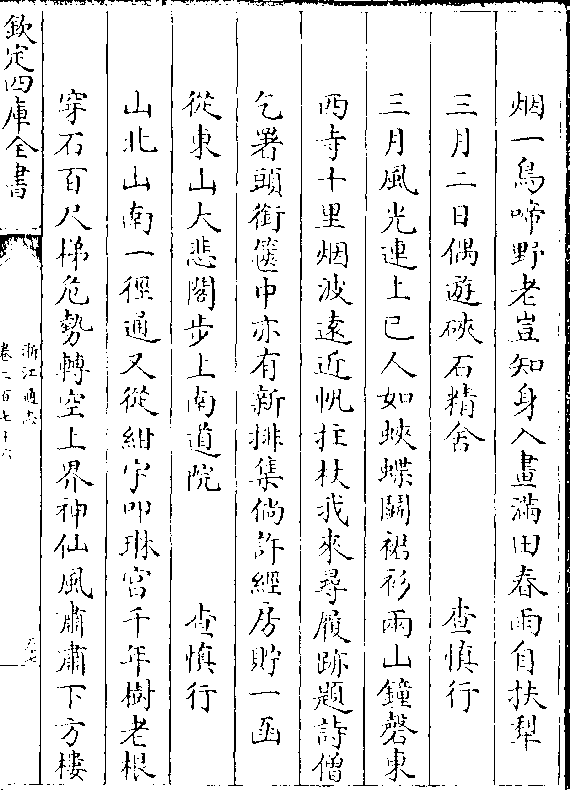 烟一鳥啼野老豈知身入畫滿田春雨自扶犁
三月二日偶遊硤石精舍　查慎行
三月風光連上巳人如蛺蝶鬬裙衫兩山鐘磬東
西寺十里烟波遠近帆拄杖我來尋履跡題詩僧
乞署頭銜篋中亦有新排集倘許經房貯一函
從東山大悲閣步上南道院　查慎行
山北山南一徑通又從紺宇叩琳宮千年樹老根
穿石百尺梯危勢轉空上界神仙風肅肅下方樓
欽定四庫全書
浙江通志
卷二百七十六